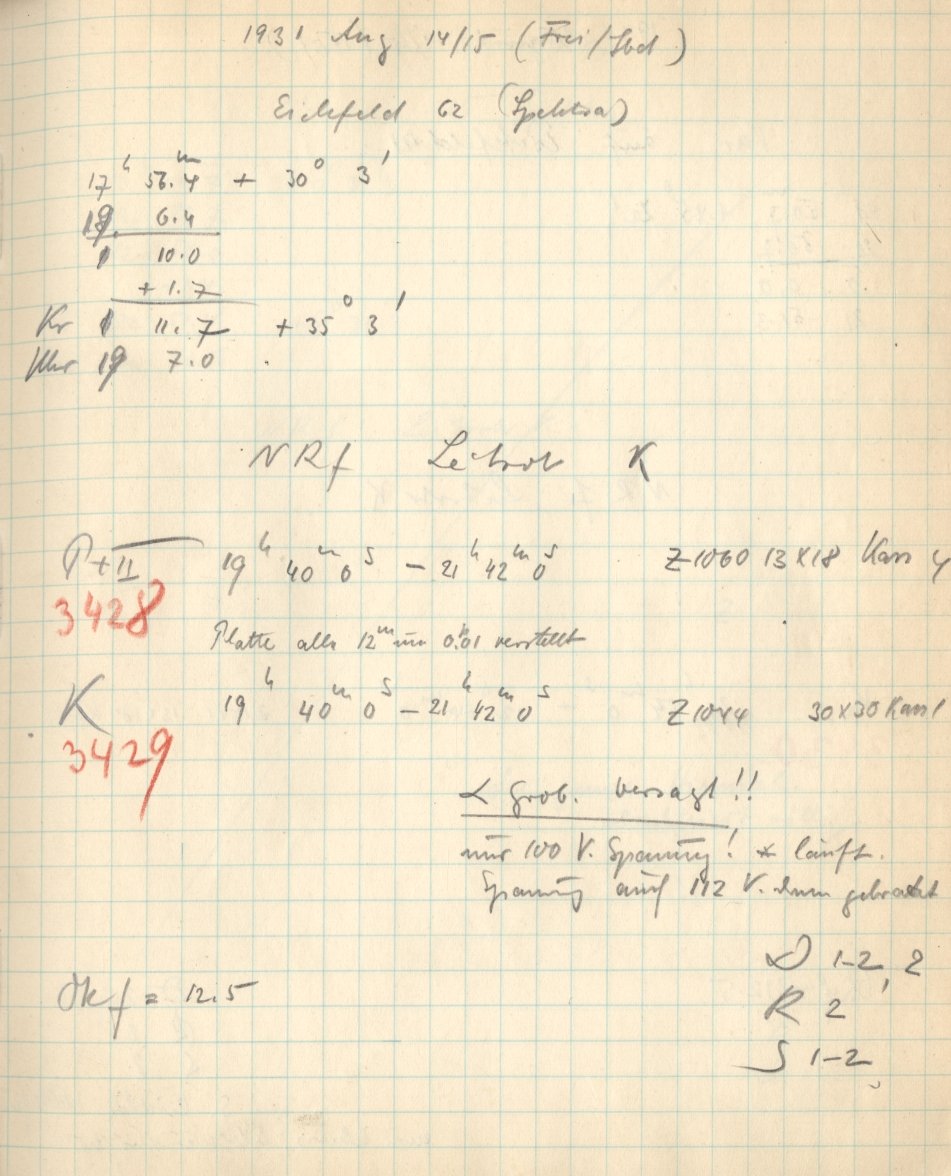 1931 Aug 14/15 (Frei/Sbd)
Eichfeld 62 (Spektra)
17ʰ 56.4ᵐ + 30° 3'
18. 6.4
1 10.0
+ 1.7
Kr 1 11.7 + 35° 3'
Uhr 19 7.0
NRf Leitrot K
P+II 19ʰ 40ᵐ 0ˢ – 21ʰ 42ᵐ 0ˢ Z1060 13x18 Kass 4
3428
Platte alle 12ᵐ um 0.01 verstellt
K 19ʰ 40ᵐ 0ˢ – 21ʰ 42ᵐ 0ˢ Z1044 30x30 Kass 1
3429
α Grob. versagt!!
nur 100 V. Spannung! * läuft.
Spannung auf 112 V. gebracht
D 1-2, 2
f = 12.5
R 2
S 1-2